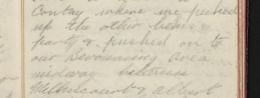 Contay where we picked
up the other half
party & pushed on to
our Devouaning Area
midway between
Millencourt & Albert